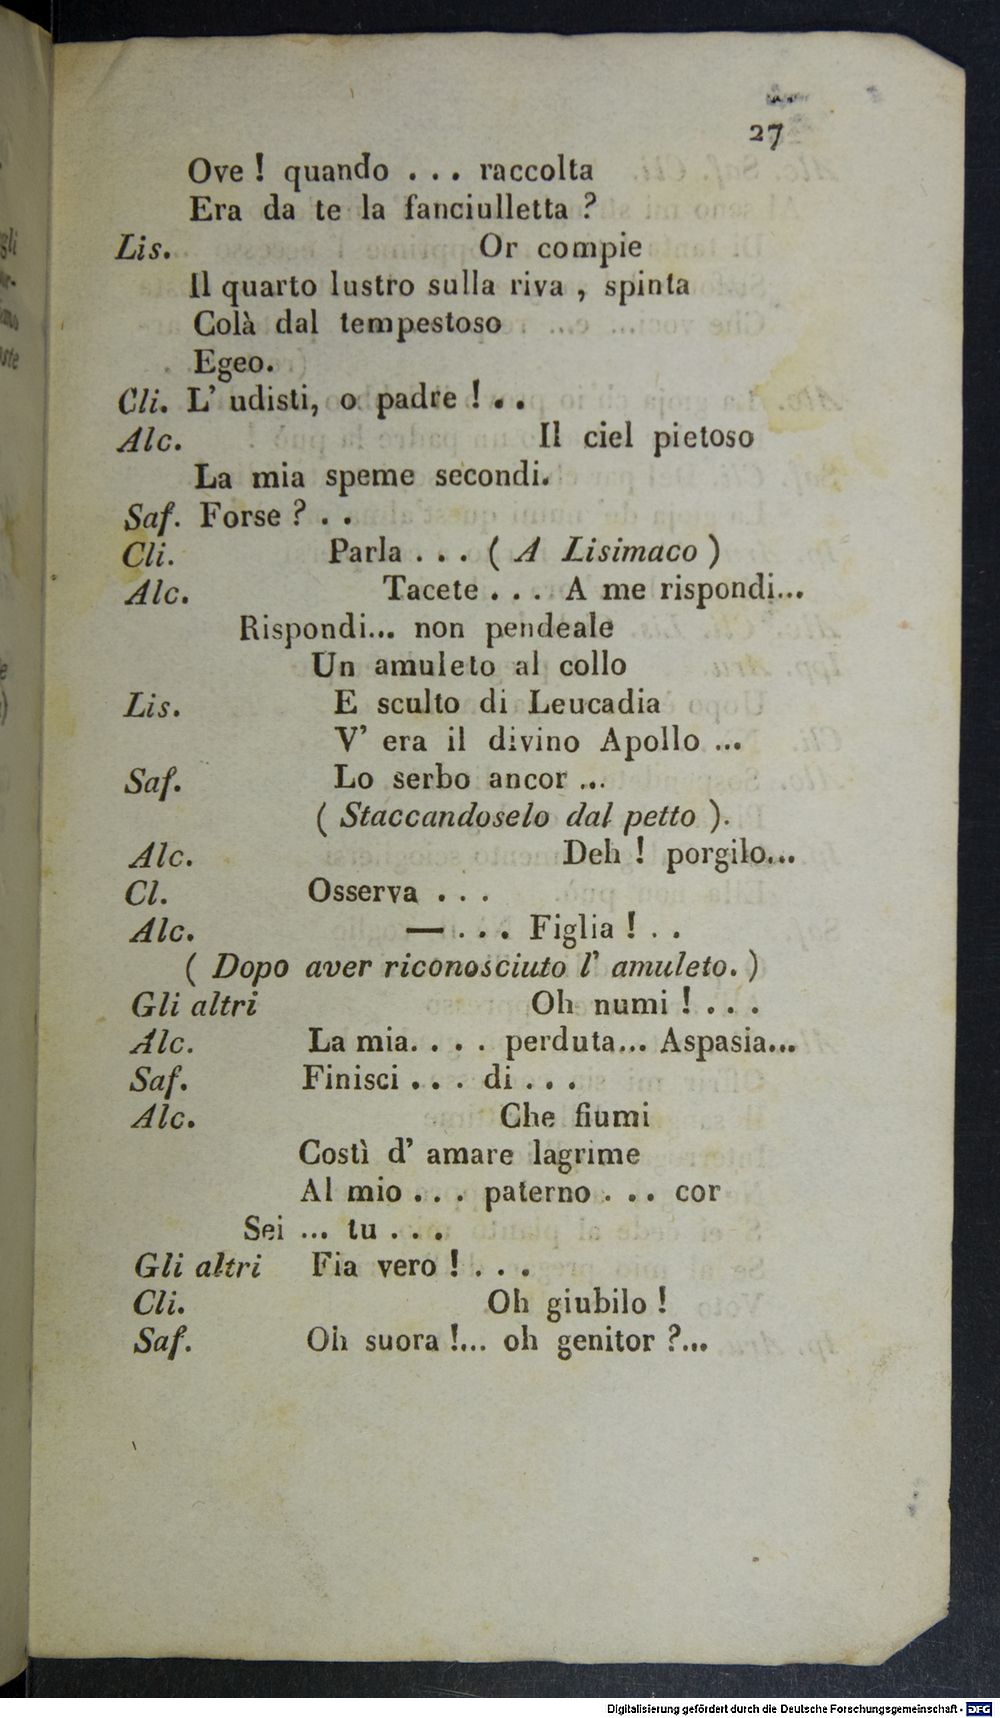 27
Ove ! quando . . . raccolta
Era da te la fanciulletta ?
Lis. Or compie
Il quarto lustro sulla riva , spinta
Colà dal tempestoso
Egeo.
Cli. L' udisti, o padre ! . .
Alc. Il ciel pietoso
La mia speme secondi.
Saf. Forse ? . .
Cli. Parla . . . ( A Lisimaco )
Alc. Tacete . . . A me rispondi...
Rispondi... non pendeale
Un amuleto al collo
Lis. E sculto di Leucadia
V' era il divino Apollo ...
Saf. Lo serbo ancor ...
( Staccandoselo dal petto ).
Alc. Deh ! porgilo...
Cl. Osserva . . .
Alc. — . . . Figlia ! . .
( Dopo aver riconosciuto l' amuleto. )
Gli altri Oh numi ! . . .
Alc. La mia. . . . perduta... Aspasia...
Saf. Finisci . . . di . . .
Alc. Che fiumi
Costì d' amare lagrime
Al mio . . . paterno . . . cor
Sei ... tu . . .
Gli altri Fia vero ! . . .
Cli. Oh giubilo !
Saf. Oh suora !... oh genitor ?...
Digitalisierung gefördert durch die Deutsche Forschungsgemeinschaft - DFG